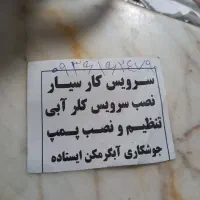 سرویس کار سیار
نصب سرویس کلر آبی
تنظیم و نصب پمپ
جوشکاری آبگرمکن ایستاده